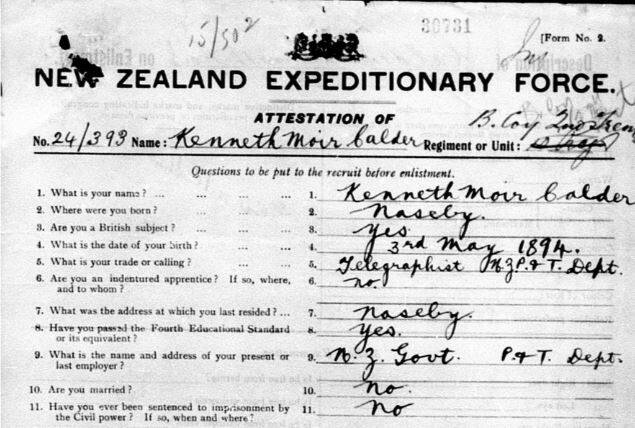 15/502
30731
[Form No. 2.
NEW ZEALAND EXPEDITIONARY FORCE.
ATTESTATION OF
B. Coy
No. 24/393 Name: Kenneth Moir Calder Regiment or Unit:
Questions to be put to the recruit before enlistment.
1. What is your name? ... ... ... 1. Kenneth Moir Calder
2. Where were you born? ... ... 2. Naseby.
3. Are you a British subject? ... ... 3. Yes
4. What is the date of your birth? ... ... 4. 3rd May 1894.
5. What is your trade or calling? ... ... 5. Telegraphist N.Z.P. & T. Dept.
6. Are you an indentured apprentice? If so, where, 6. No.
and to whom?
7. What was the address at which you last resided? ... 7. Naseby.
8. Have you passed the Fourth Educational Standard 8. Yes.
or its equivalent?
9. What is the name and address of your present or 9. N.Z. Govt. P. & T. Dept.
last employer?
10. Are you married? ... ... ... 10. No.
11. Have you ever been sentenced to imprisonment by 11. No
the Civil power? If so, when and where?